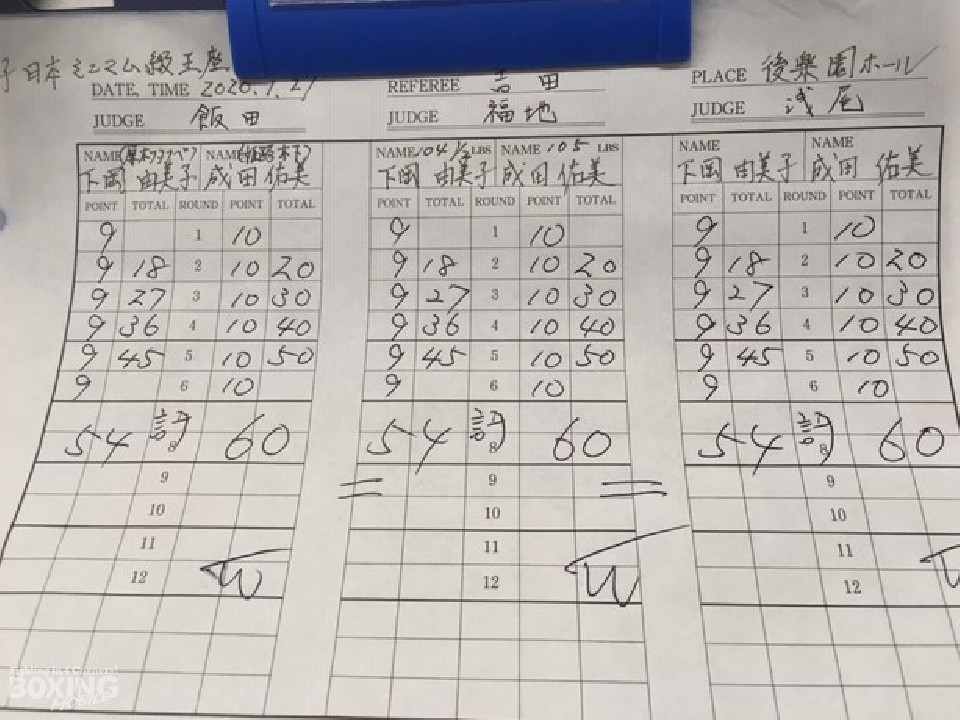 子日本ミニマム級王座
DATE, TIME 2020.1.27
REFEREE 吉田
PLACE 後楽園ホール
JUDGE 飯田
JUDGE 福地
JUDGE 浅尾
NAME NAME
NAME 104 1/2 LBS NAME 105 LBS
NAME NAME
下岡 由美子 成田 佑美
下岡 由美子 成田 佑美
下岡 由美子 成田 佑美
POINT TOTAL ROUND POINT TOTAL
POINT TOTAL ROUND POINT TOTAL
POINT TOTAL ROUND POINT TOTAL
9 1 10
9 1 10
9 1 10
9 18 2 10 20
9 18 2 10 20
9 18 2 10 20
9 27 3 10 30
9 27 3 10 30
9 27 3 10 30
9 36 4 10 40
9 36 4 10 40
9 36 4 10 40
9 45 5 10 50
9 45 5 10 50
9 45 5 10 50
9 6 10
9 6 10
9 6 10
54 8 60
54 8 60
54 8 60
9
9
9
10
10
10
11
11
11
12 W
12 W
12 W
Fighting in 4 Corners!
BOXING
MOBILE